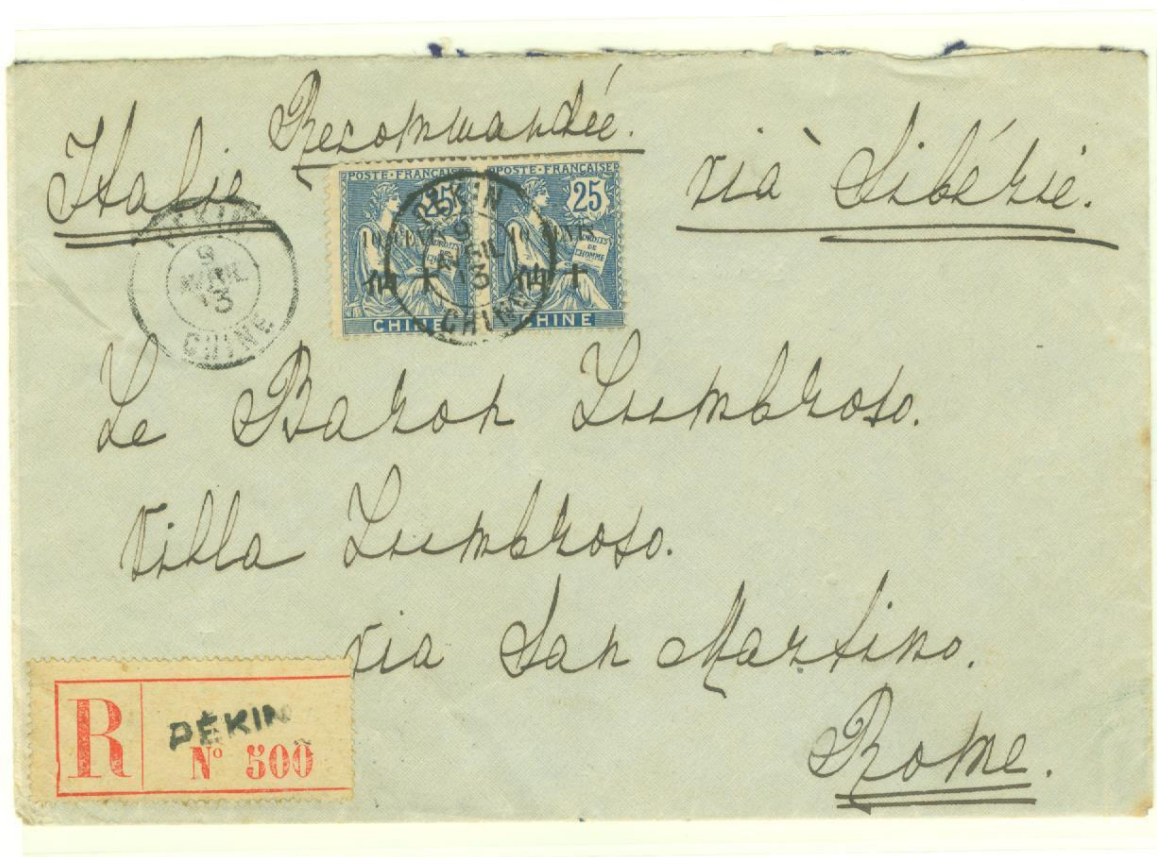 Recommandée.
Italie
via Sibérie.
POSTE FRANÇAISE
25
仙 十
CHINE
POSTE FRANÇAISE
25
DROITS DE L'HOMME
仙 十
CHINE
PEKIN
9
AVRIL
13
CHINE
PEKIN
9
AVRIL
13
CHINE
Le Baron Lumbroso.
Villa Lumbroso.
via San Martino.
Rome.
R
PÉKIN
Nº 500